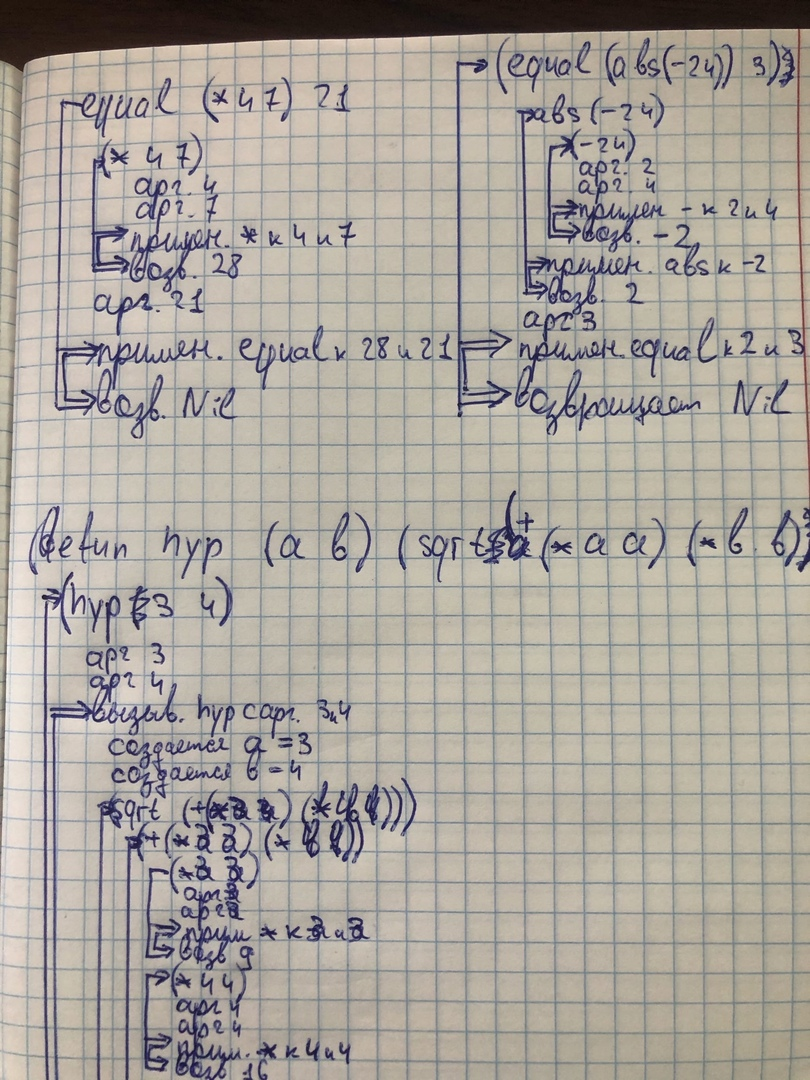 equal (* 4 7) 21
(* 4 7)
арг. 4
арг. 7
примен. * к 4 и 7
возв. 28
арг. 21
примен. equal к 28 и 21
возв. Nil
(equal (abs(-24)) 3)
abs (-24)
(-24)
арг. 2
арг. 4
примен - к 2 и 4
возв. -2
примен. abs к -2
возв. 2
арг 3
примен. equal к 2 и 3
возвращает Nil
(defun hyp (a b) (sqrt (+ (* a a) (* b b)
(hyp 3 4)
арг 3
арг 4
вызыв. hyp с арг. 3 и 4
создается a = 3
создается b = 4
(sqrt (+ (* a a) (* b b)))
(+ (* a a) (* b b))
(* a a)
арг
арг
прим * к и
возв 9
(* 4 4)
арг 4
арг 4
прим. * к 4 и 4
возв 16